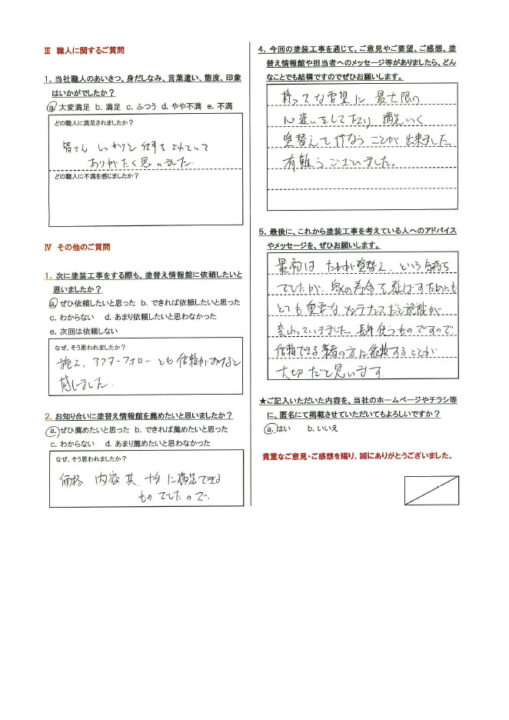 Ⅲ 職人に関するご質問
1. 当社職人のあいさつ、身だしなみ、言葉遣い、態度、印象
はいかがでしたか？
a. 大変満足 b. 満足 c. ふつう d. やや不満 e. 不満
どの職人に満足されましたか？
皆さん しっかりと仕事をされていて
ありがたく思いました
どの職人に不満を感じましたか？
Ⅳ その他のご質問
1. 次に塗装工事をする際も、塗替え情報館に依頼したいと
思いましたか？
a. ぜひ依頼したいと思った b. できれば依頼したいと思った
c. わからない d. あまり依頼したいと思わなかった
e. 次回は依頼しない
なぜ、そう思われましたか？
施工、アフターフォローとも信頼がおけると
感じました。
2. お知り合いに塗替え情報館を薦めたいと思いましたか？
a. ぜひ薦めたいと思った b. できれば薦めたいと思った
c. わからない d. あまり薦めたいと思わなかった
なぜ、そう思われましたか？
価格、内容共、十分に満足できる
ものでしたので、
4. 今回の塗装工事を通じて、ご意見やご要望、ご感想、塗
替え情報館や担当者へのメッセージ等がありましたら、どん
なことでも結構ですのでぜひお願いします。
要望に最大限の
心遣いをして下さり 満足いく
塗替えを行なうことが出来ました。
有難うございました。
5. 最後に、これから塗装工事を考えている人へのアドバイス
やメッセージを、ぜひお願いします。
最初はたかが塗替え、という気持ち
でしたが、家の寿命を延ばすためにも
とても重要なメンテナンスだと認識が
変わっていきました。長年使うものですので
信頼できる業者の方に依頼することが
大切だと思います
★ご記入いただいた内容を、当社のホームページやチラシ等
に、匿名にて掲載させていただいてもよろしいですか？
a. はい b. いいえ
貴重なご意見・ご感想を賜り、誠にありがとうございました。